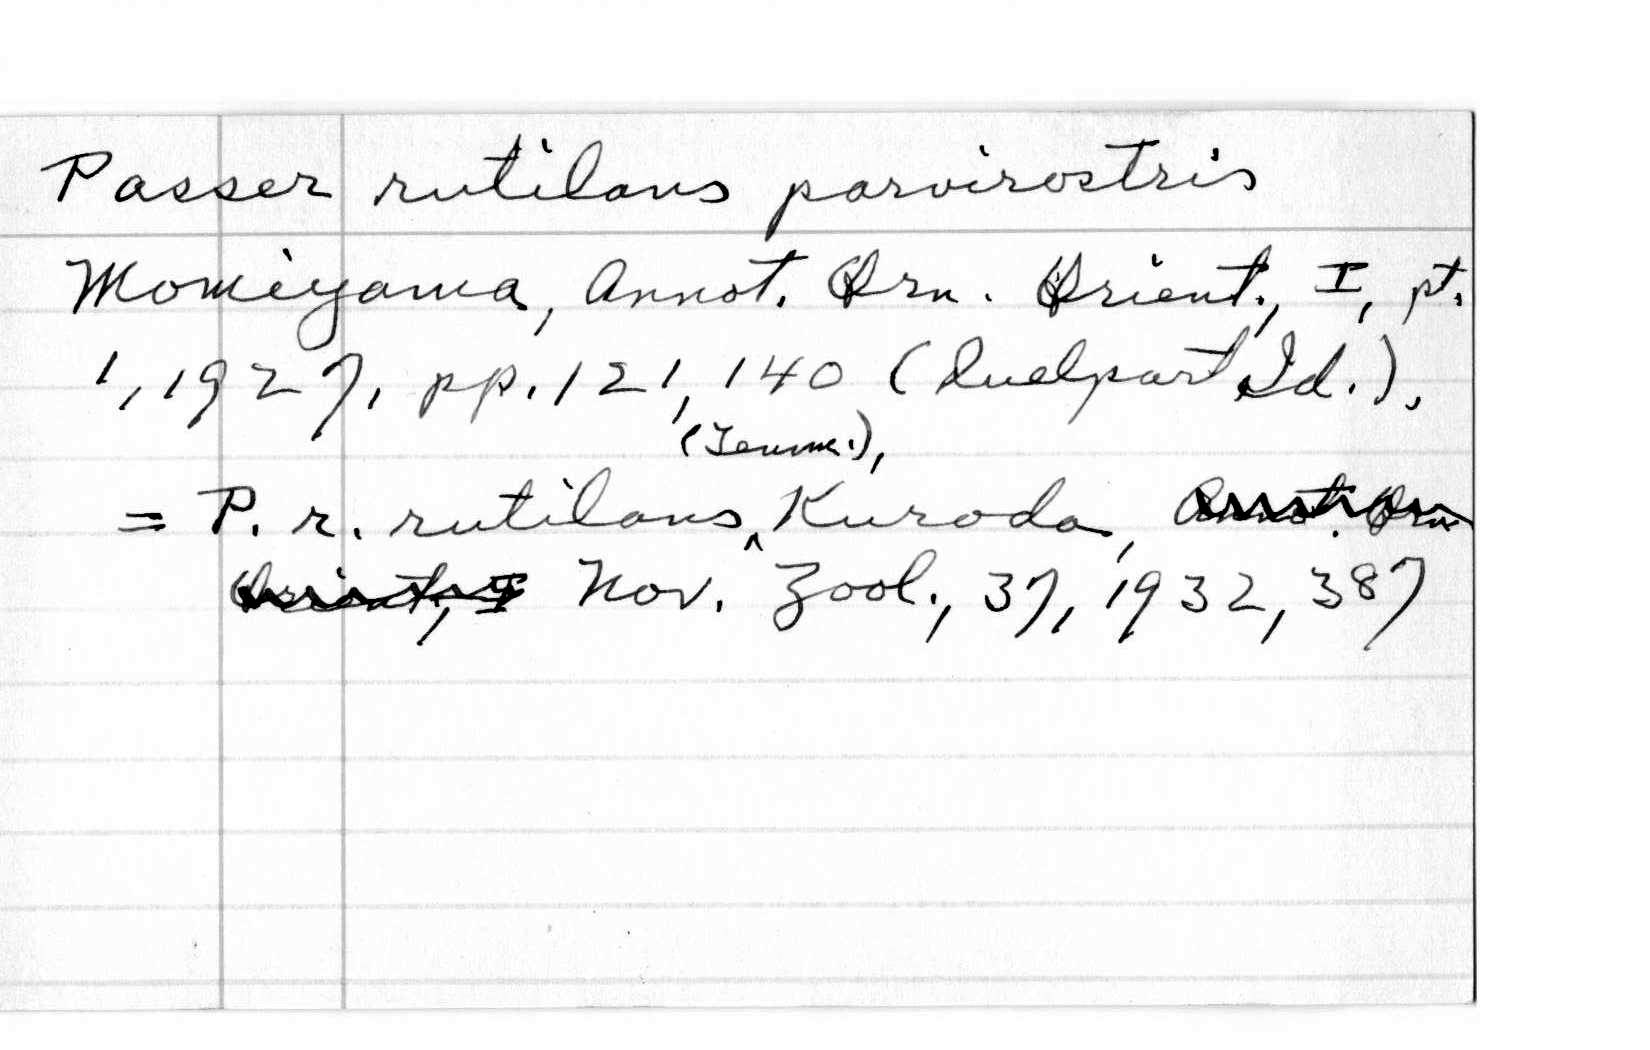 Passer rutilans parvirostris
Momiyama, Annot. Orn. Orient., I, pt.
1, 1927, pp. 121, 140 (Quelpart Id.).
(Temm.),
= P. r. rutilans ^ Kuroda, Annot. Orn
Orient, I Nov. Zool., 37, 1932, 387